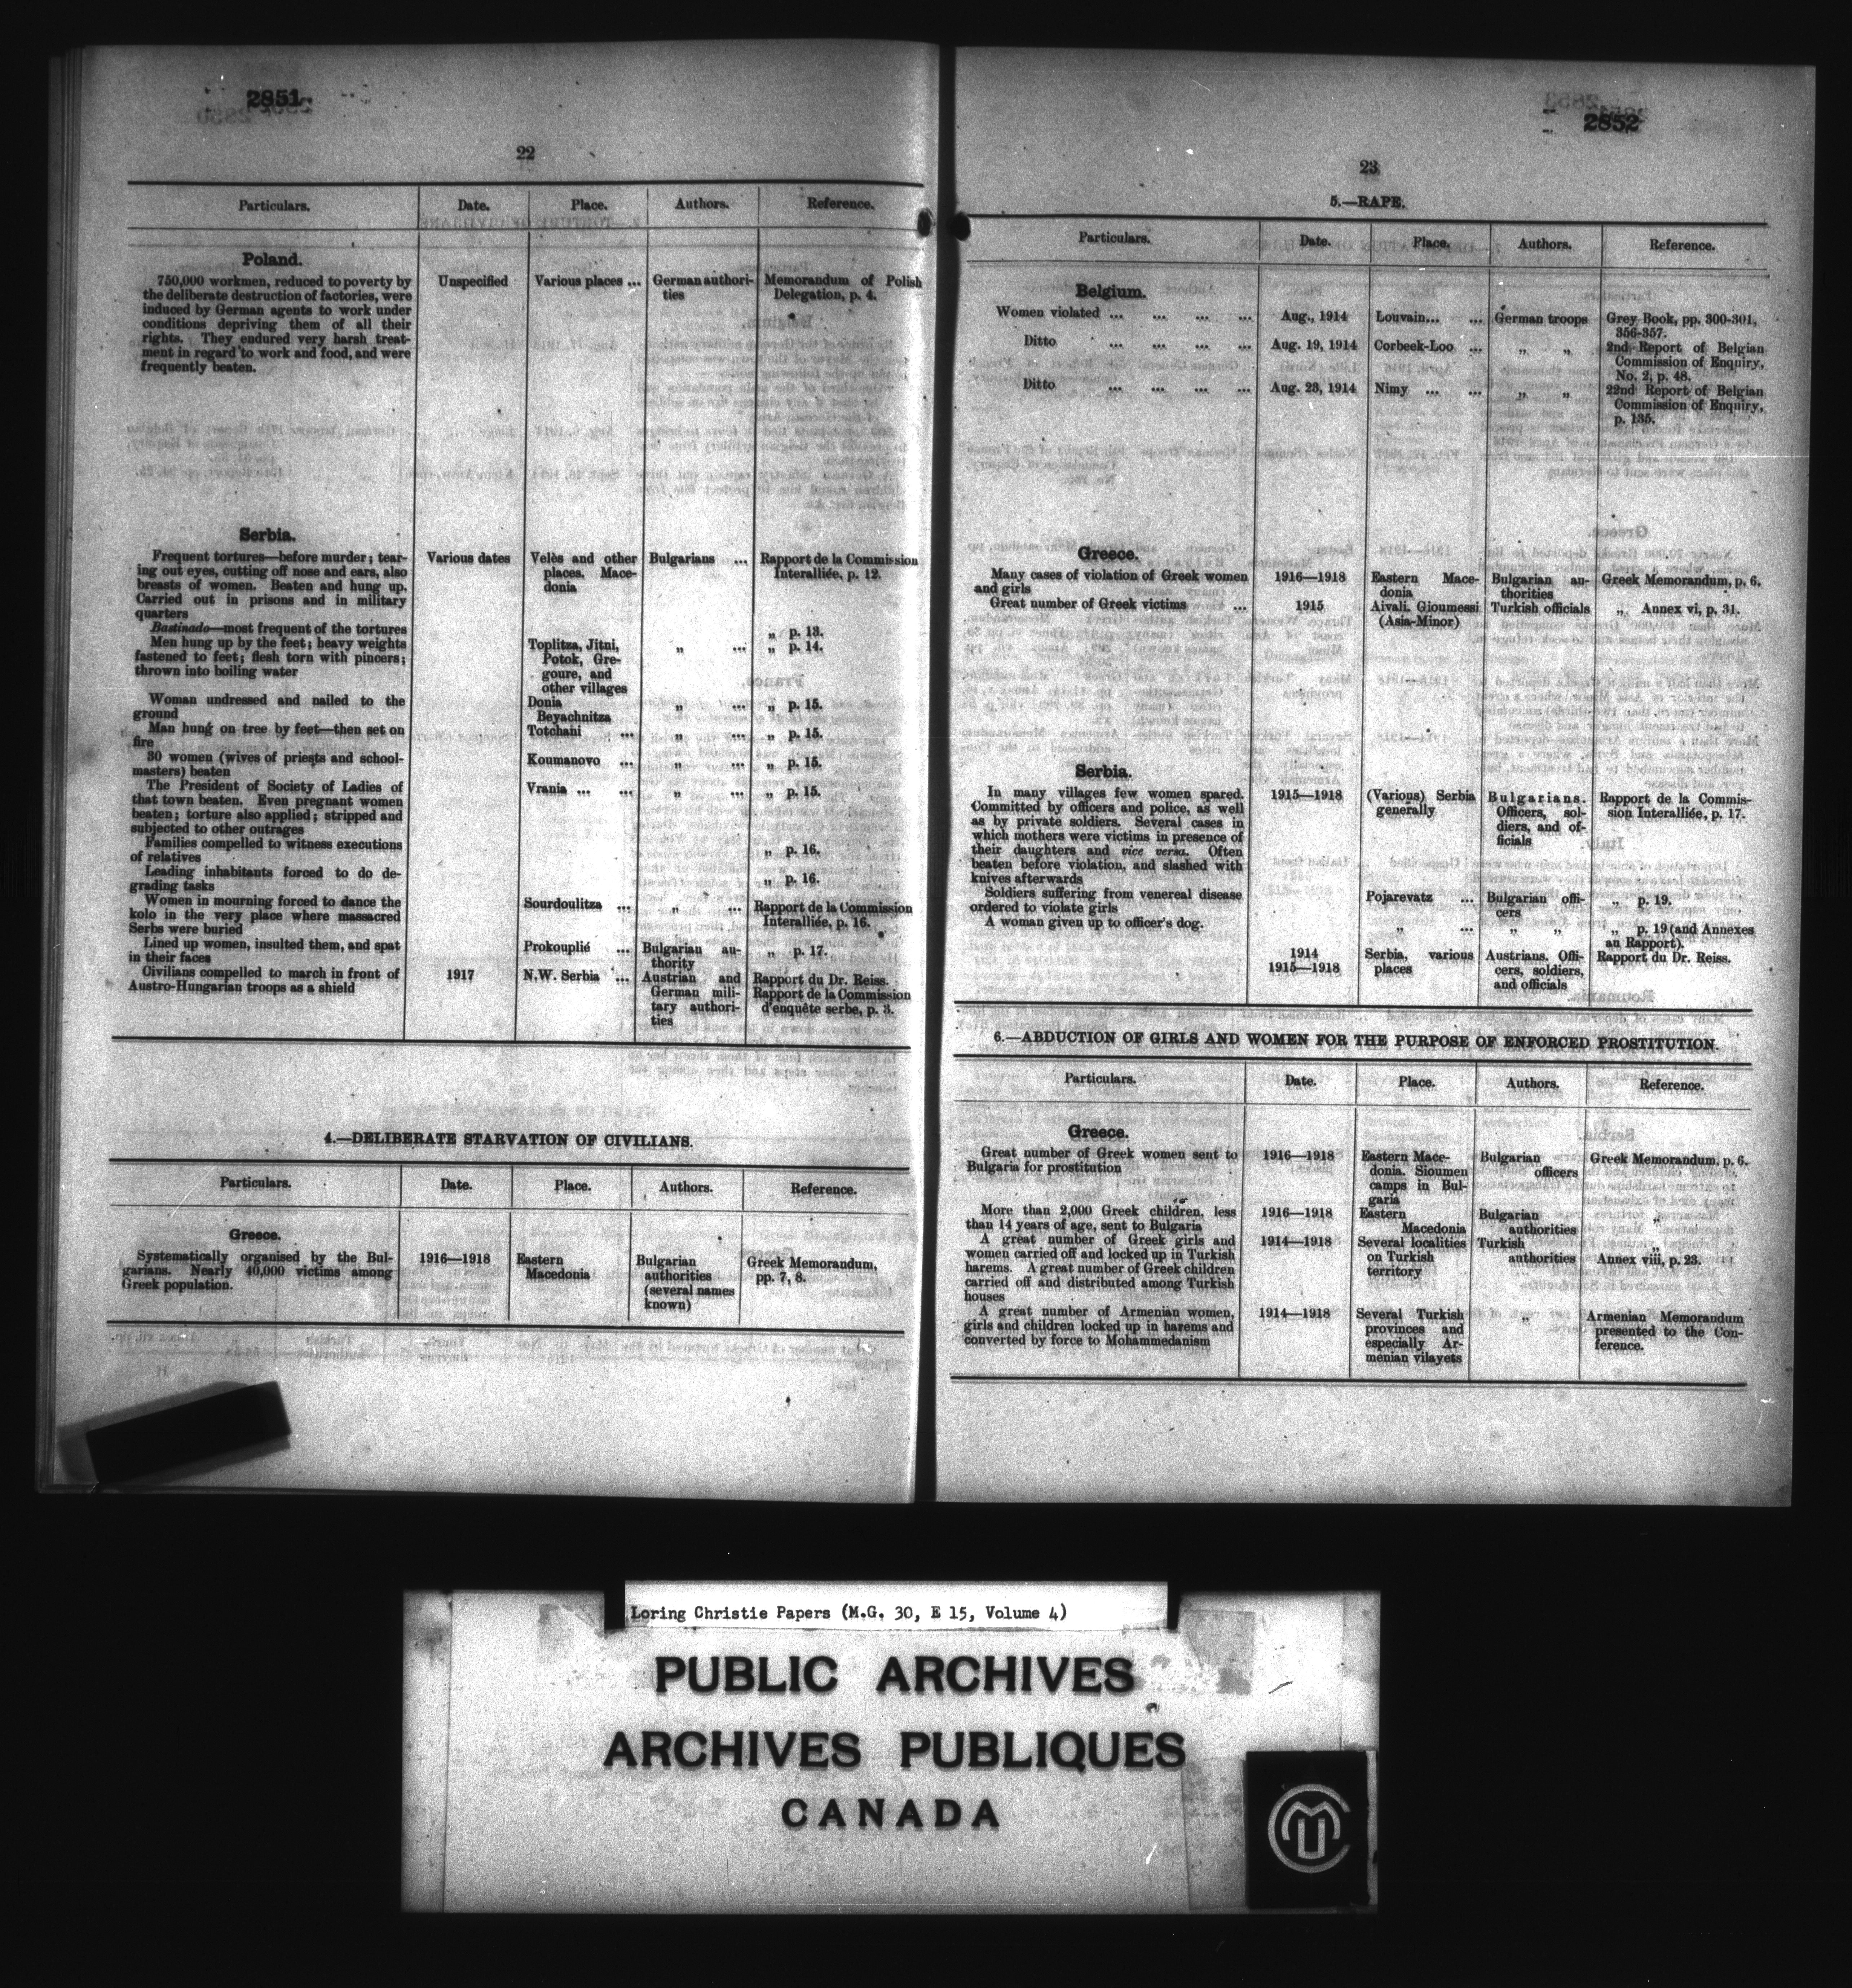 2851
22
Particulars. Date. Place. Authors. Reference.
Poland.
750,000 workmen, reduced to poverty by Unspecified Various places ... German authori- Memorandum of Polish
the deliberate destruction of factories, were ties Delegation, p. 4.
induced by German agents to work under
conditions depriving them of all their
rights. They endured very harsh treat-
ment in regard to work and food, and were
frequently beaten.
Serbia.
Frequent tortures—before murder; tear- Various dates Velès and other Bulgarians ... Rapport de la Commission
ing out eyes, cutting off nose and ears, also places. Mace- Interalliée, p. 12.
breasts of women. Beaten and hung up. donia
Carried out in prisons and in military
quarters
Bastinado—most frequent of the tortures „ p. 13.
Men hung up by the feet; heavy weights Toplitza, Jitni, „ ... „ p. 14.
fastened to feet; flesh torn with pincers; Potok, Gre-
thrown into boiling water goure, and
other villages
Woman undressed and nailed to the Donia „ ... „ p. 15.
ground Beyachnitza
Man hung on tree by feet—then set on Totchani ... „ ... „ p. 15.
fire
30 women (wives of priests and school- Koumanovo ... „ ... „ p. 15.
masters) beaten
The President of Society of Ladies of Vrania ... ... „ ... „ p. 15.
that town beaten. Even pregnant women
beaten; torture also applied; stripped and
subjected to other outrages
Families compelled to witness executions „ p. 16.
of relatives
Leading inhabitants forced to do de- „ p. 16.
grading tasks
Women in mourning forced to dance the Sourdoulitza ... „ ... Rapport de la Commission
kolo in the very place where massacred Interalliée, p. 16.
Serbs were buried
Lined up women, insulted them, and spat Prokouplié ... Bulgarian au- „ p. 17.
in their faces thority
Civilians compelled to march in front of 1917 N.W. Serbia ... Austrian and Rapport du Dr. Reiss.
Austro-Hungarian troops as a shield German mili- Rapport de la Commission
tary authori- d'enquête serbe, p. 3.
ties
4.—DELIBERATE STARVATION OF CIVILIANS.
Particulars. Date. Place. Authors. Reference.
Greece.
Systematically organised by the Bul- 1916—1918 Eastern Bulgarian Greek Memorandum,
garians. Nearly 40,000 victims among Macedonia authorities pp. 7, 8.
Greek population. (several names
known)
2852
23
5.—RAPE.
Particulars. Date. Place. Authors. Reference.
Belgium.
Women violated ... ... ... ... Aug., 1914 Louvain... ... German troops Grey Book, pp. 300-301,
356-357.
Ditto ... ... ... ... Aug. 19, 1914 Corbeek-Loo ... „ „ 2nd Report of Belgian
Commission of Enquiry,
No. 2, p. 48.
Ditto ... ... ... ... Aug. 23, 1914 Nimy ... ... „ „ 22nd Report of Belgian
Commission of Enquiry,
p. 135.
Greece.
Many cases of violation of Greek women 1916—1918 Eastern Mace- Bulgarian au- Greek Memorandum, p. 6.
and girls donia thorities
Great number of Greek victims ... 1915 Aivali, Gioumessi Turkish officials „ Annex vi, p. 31.
(Asia-Minor)
Serbia.
In many villages few women spared. 1915—1918 (Various) Serbia Bulgarians. Rapport de la Commis-
Committed by officers and police, as well generally Officers, sol- sion Interalliée, p. 17.
as by private soldiers. Several cases in diers, and of-
which mothers were victims in presence of ficials
their daughters and vice versa. Often
beaten before violation, and slashed with
knives afterwards
Soldiers suffering from venereal disease Pojarevatz ... Bulgarian offi- „ p. 19.
ordered to violate girls cers
A woman given up to officer's dog. „ ... „ „ „ p. 19 (and Annexes
au Rapport).
1914 Serbia, various Austrians. Offi- Rapport du Dr. Reiss.
1915—1918 places cers, soldiers,
and officials
6.—ABDUCTION OF GIRLS AND WOMEN FOR THE PURPOSE OF ENFORCED PROSTITUTION.
Particulars. Date. Place. Authors. Reference.
Greece.
Great number of Greek women sent to 1916—1918 Eastern Mace- Bulgarian Greek Memorandum, p. 6.
Bulgaria for prostitution donia. Sioumen officers
camps in Bul-
garia
More than 2,000 Greek children, less 1916—1918 Eastern Bulgarian „
than 14 years of age, sent to Bulgaria Macedonia authorities
A great number of Greek girls and 1914—1918 Several localities Turkish „
women carried off and locked up in Turkish on Turkish authorities Annex viii, p. 23.
harems. A great number of Greek children territory
carried off and distributed among Turkish
houses
A great number of Armenian women, 1914—1918 Several Turkish „ Armenian Memorandum
girls and children locked up in harems and provinces and presented to the Con-
converted by force to Mohammedanism especially Ar- ference.
menian vilayets
Loring Christie Papers (M.G. 30, E 15, Volume 4)
PUBLIC ARCHIVES
ARCHIVES PUBLIQUES
CANADA